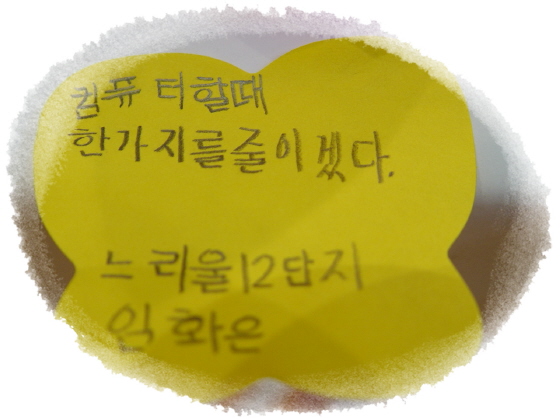 컴퓨터할때
한가지를줄이겠다.
느리울12단지
임화은